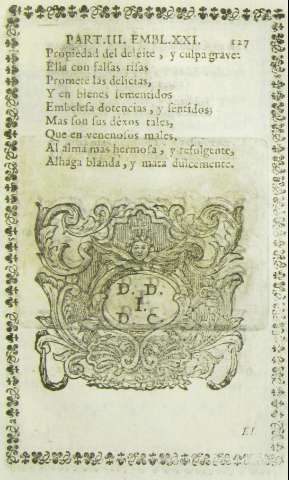 PART.III. EMBL.XXI. 127
Propiedad del deleite, y culpa grave:
Ella con falsas risas
Promete las delicias,
Y en bienes fementidos
Embelesa dotencias, y sentidos;
Mas son sus déxos tales,
Que en venenosos males,
Al alma mas hermosa, y refulgente,
Alhaga blanda, y mata dulcemente.
D. D.
I.
D. C.